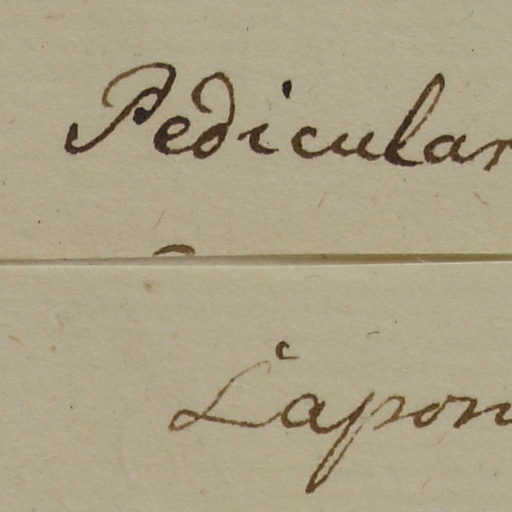 Pedicular
Lapon